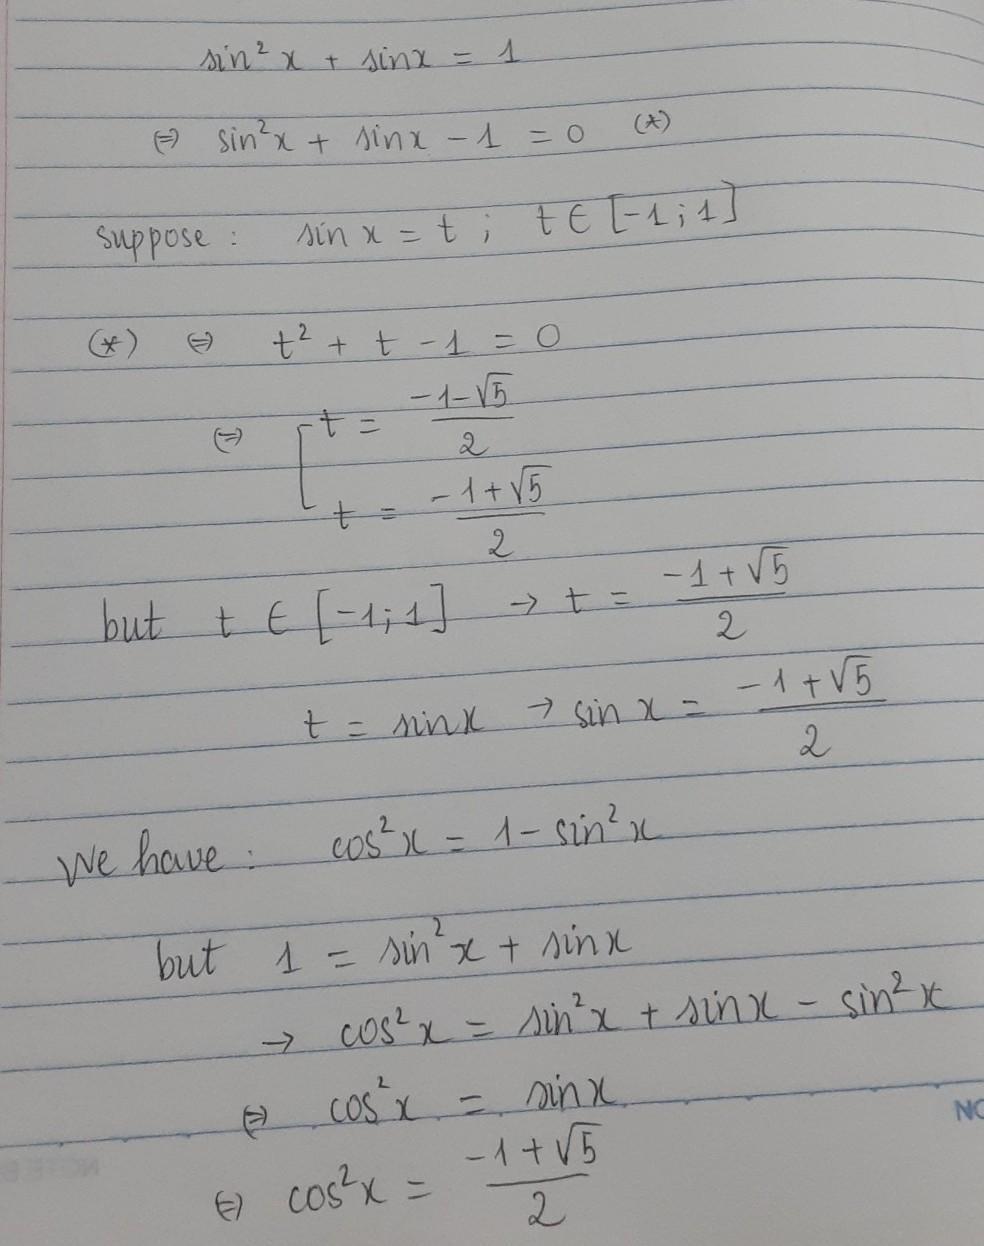 sin²x + sinx = 1
⇔ sin²x + sinx - 1 = 0 (*)
suppose : sin x = t ; t ∈ [-1;1]
(*) ⇔ t² + t - 1 = 0
⇔ [ t = (-1-√5)/2
t = (-1+√5)/2
but t ∈ [-1;1] → t = (-1+√5)/2
t = sinx → sin x = (-1+√5)/2
We have : cos²x = 1 - sin²x
but 1 = sin²x + sinx
→ cos²x = sin²x + sinx - sin²x
⇔ cos²x = sinx
NO
⇔ cos²x = (-1+√5)/2